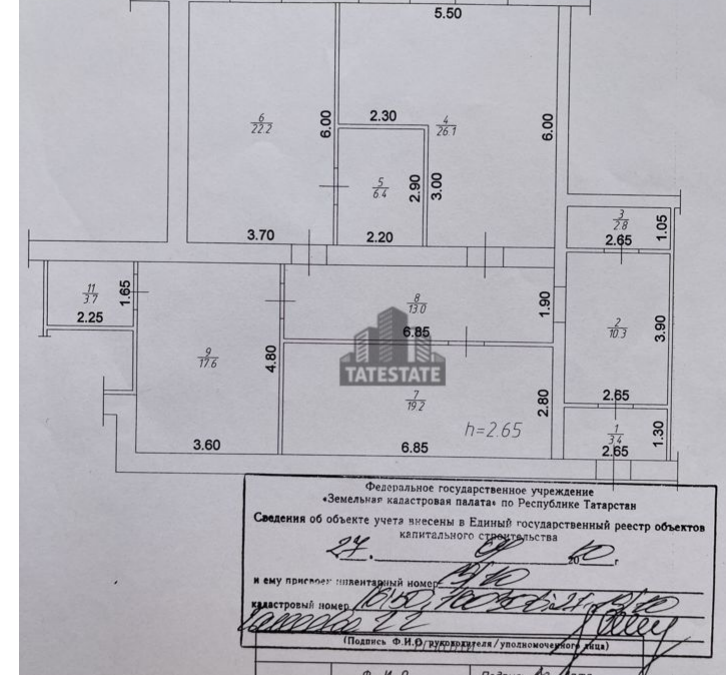 5.50
6
22.2
6.00
2.30
4
26.1
6.00
5
6.4
2.90
3.00
3
2.8
1.05
2.65
3.70
2.20
11
3.7
1.65
2.25
8
13.0
1.90
6.85
2
10.3
3.90
9
17.6
4.80
TATESTATE
7
19.2
2.80
2.65
1
3.4
1.30
2.65
3.60
6.85
h=2.65
Федеральное государственное учреждение
«Земельная кадастровая палата» по Республике Татарстан
Сведения об объекте учета внесены в Единый государственный реестр объектов
капитального строительства
27. 20 10 г
и ему присвоен инвентарный номер
кадастровый номер
(Подпись Ф.И.О. руководителя/уполномоченного лица)
Ф. И. О.